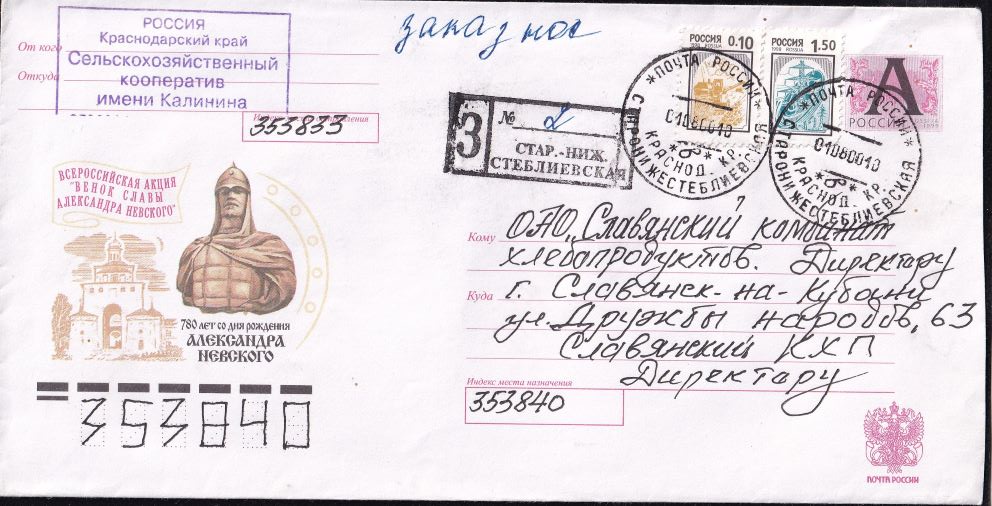 заказное
РОССИЯ
Краснодарский край
Сельскохозяйственный
кооператив
имени Калинина
От кого
Откуда
353833
РОССИЯ 0.10
1998 ROSSIJA
РОССИЯ 1.50
1998 ROSSIJA
А
РОССИЯ
* ПОЧТА РОССИИ *
01080010
КРАСНОД. КР.
СТАРОНИЖЕСТЕБЛИЕВСКАЯ
* ПОЧТА РОССИИ *
01080010
КРАСНОД. КР.
СТАРОНИЖЕСТЕБЛИЕВСКАЯ
З
№ 2
СТАР.-НИЖ.
СТЕБЛИЕВСКАЯ
ВСЕРОССИЙСКАЯ АКЦИЯ
"ВЕНОК СЛАВЫ
АЛЕКСАНДРА НЕВСКОГО"
780 ЛЕТ СО ДНЯ РОЖДЕНИЯ
АЛЕКСАНДРА
НЕВСКОГО
Кому ОАО „Славянский комбинат
хлебопродуктов. Директору
Куда г. Славянск-на-Кубани
ул. Дружбы народов, 63
Славянский КХП
Директору
Индекс места назначения
353840
353840
ПОЧТА РОССИИ